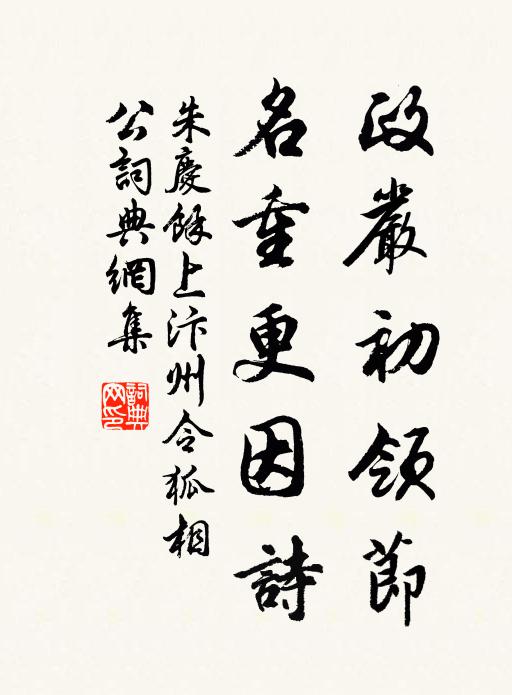 政嚴初領節
名重更因詩
朱慶餘上汴州令狐相
公詞典網集
詞典
网印